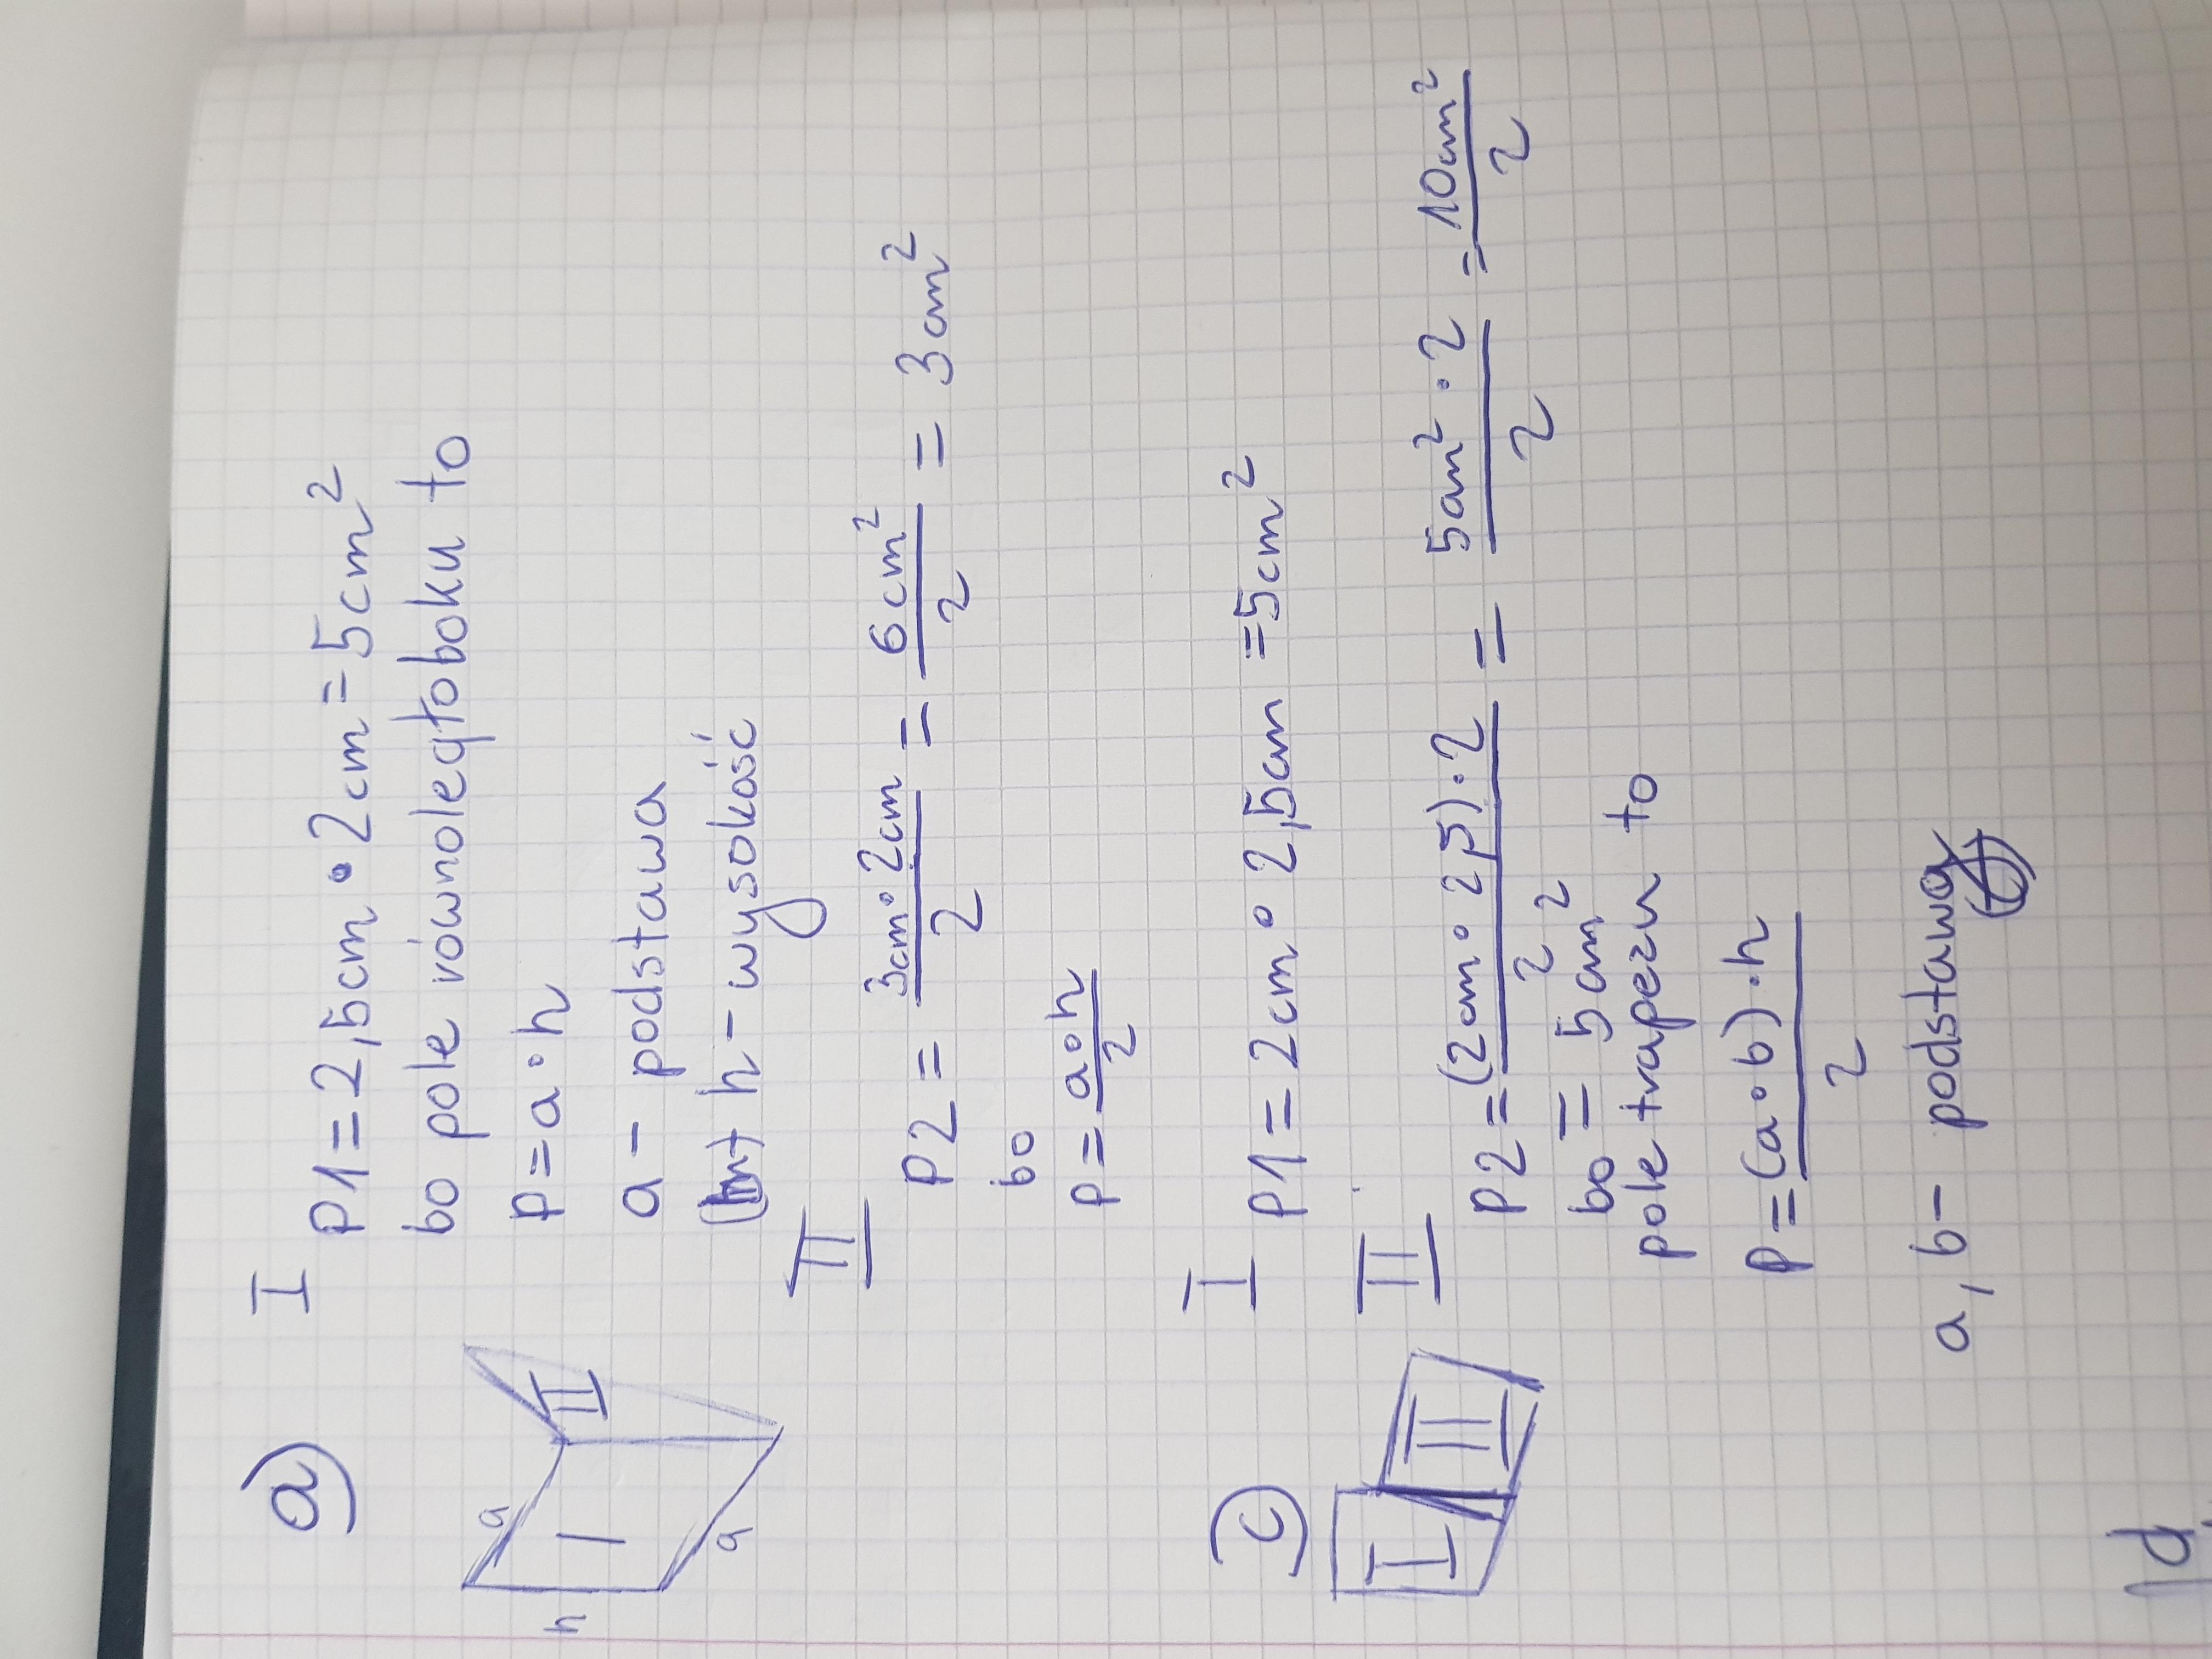 a)
I
P1=2,5cm•2cm=5cm²
bo pole równoległoboku to
P=a•h
a - podstawa
h - wysokość
a
I
II
h
a
II
P2 = 3cm•2cm/2 = 6cm²/2 = 3cm²
bo
P= a•h/2
c)
I P1=2cm•2,5cm=5cm²
I
II
II
P2=(2cm•2,5)•2/2 = 5cm²•2/2 = 10cm²/2
= 5cm²
bo
pole trapezu to
P=(a•b)•h/2
a, b- podstawa